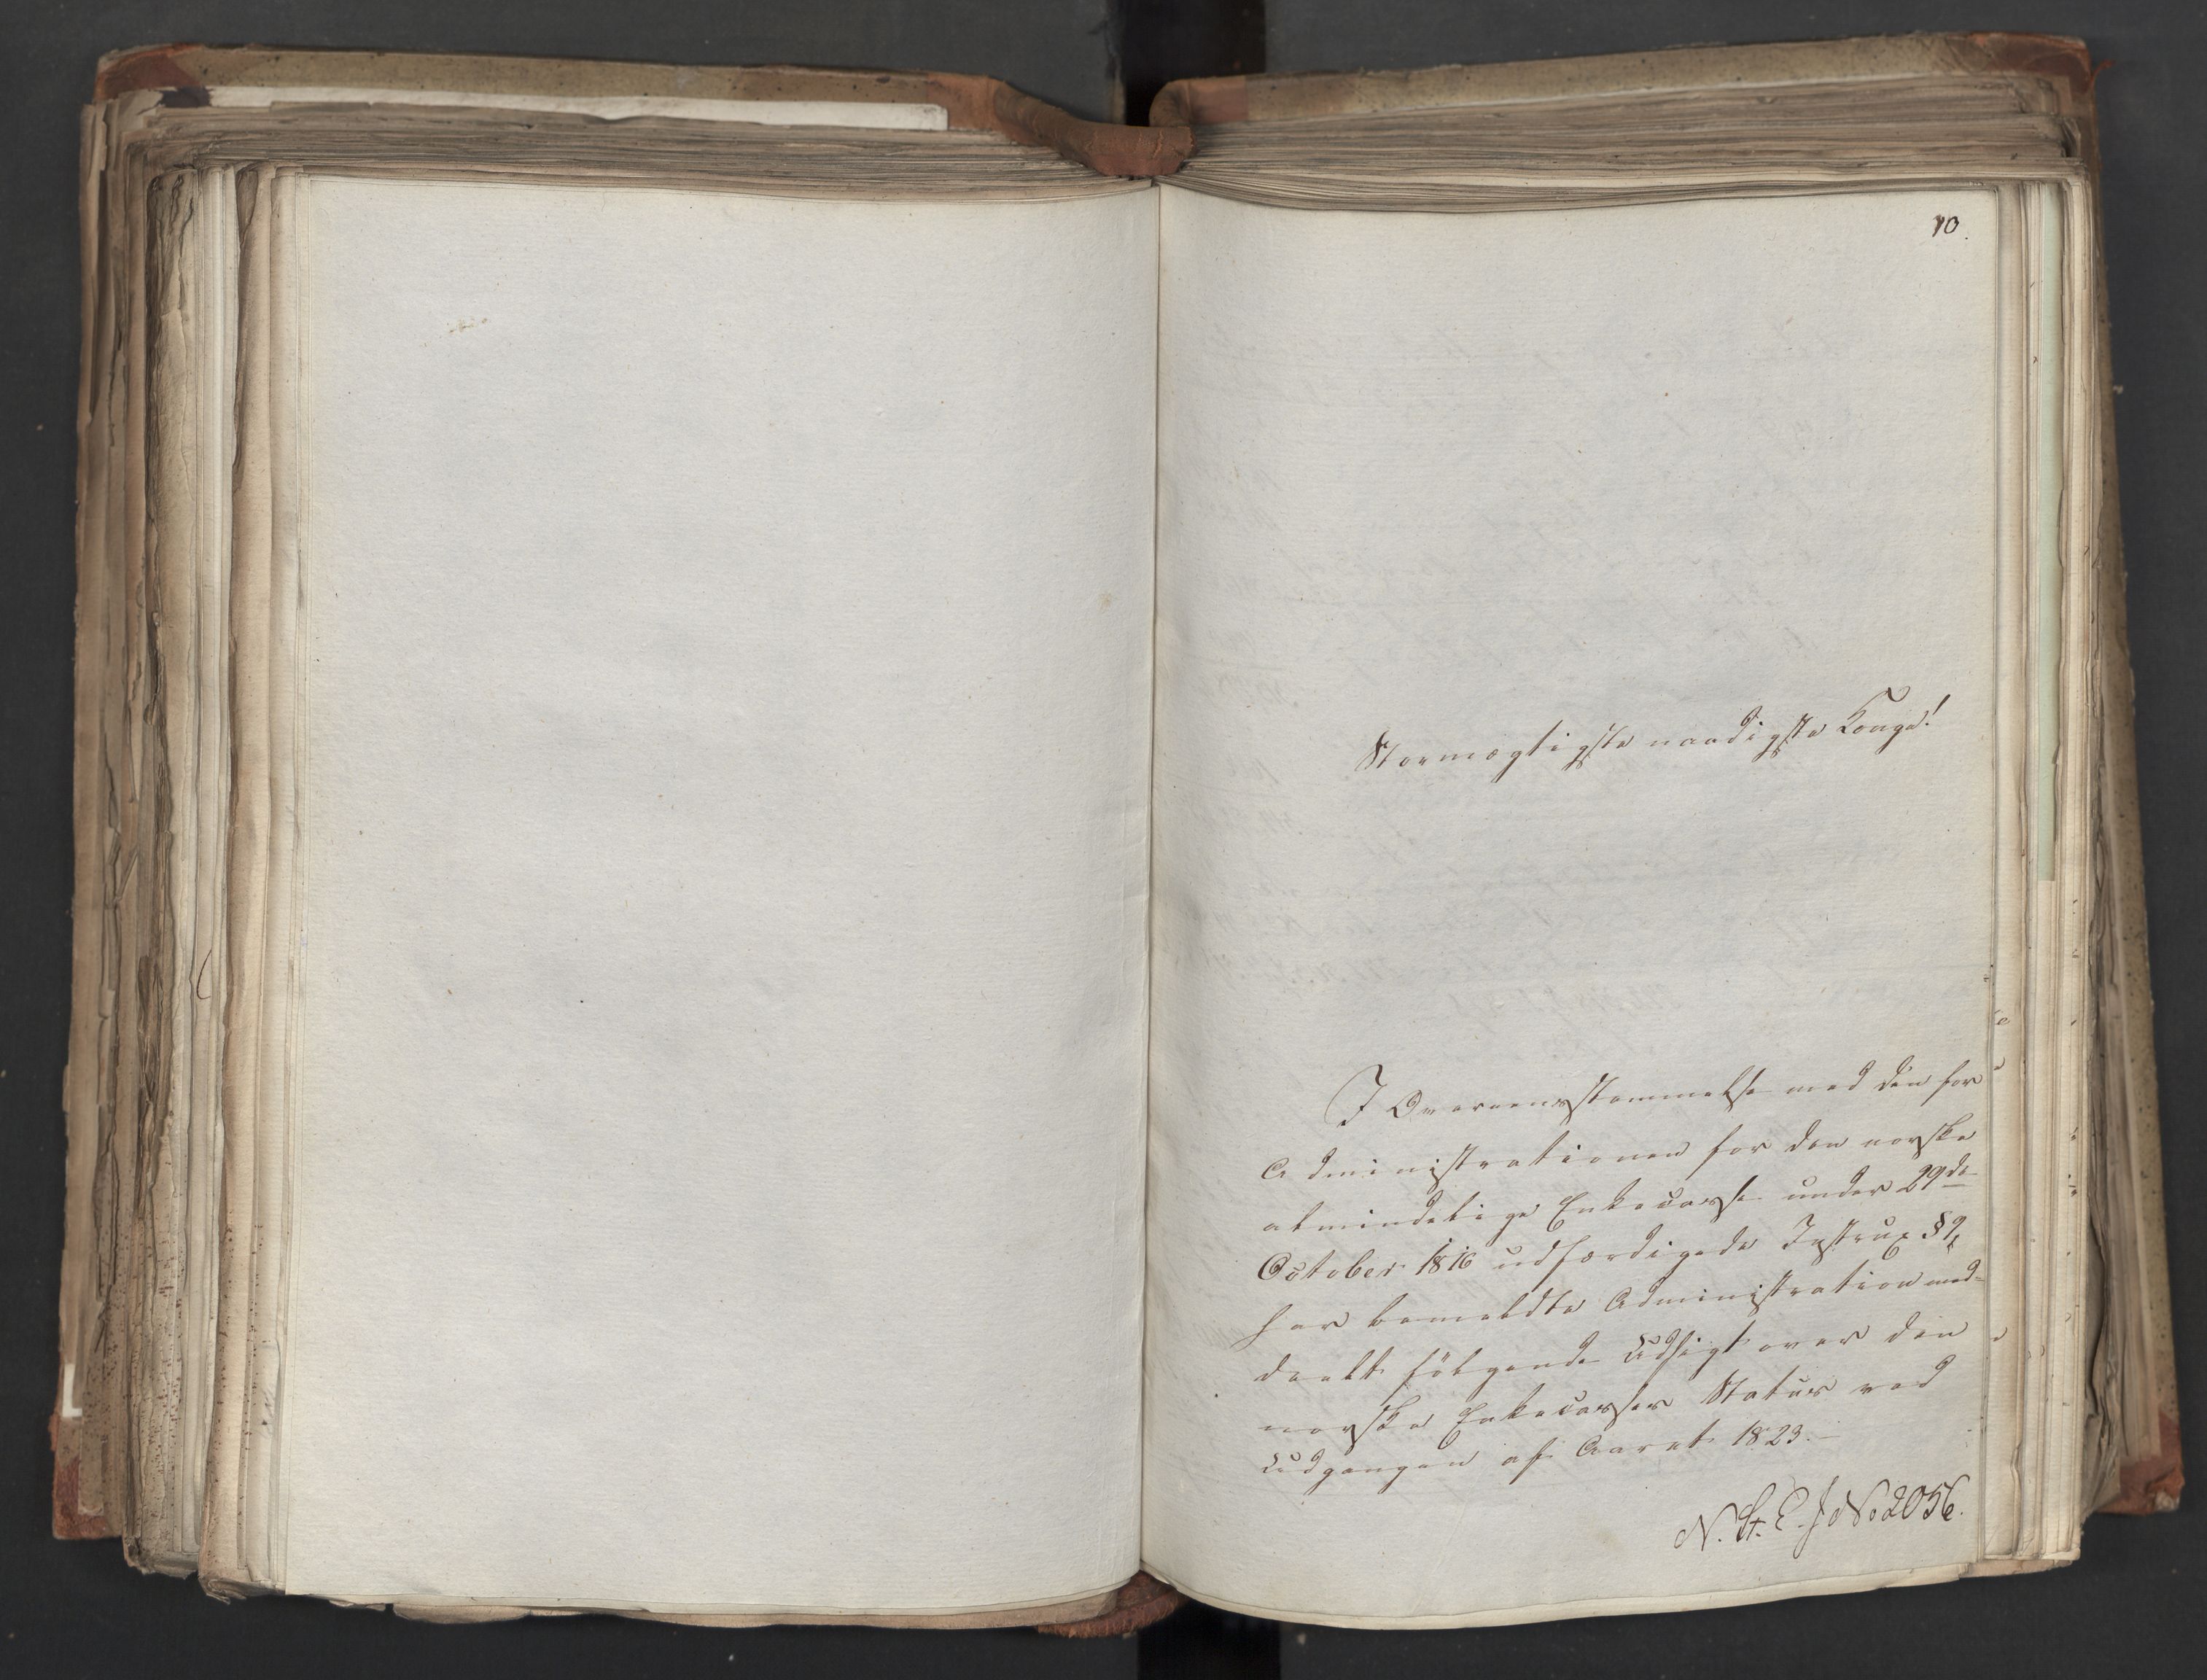 10.
Stormægtigste naadigste Konge!
I Overeensstemmelse med den for
Administrationen for den norske
almindelige Enkecasse under 29de
October 1816 udfærdigede Instrux § 9,
har bemeldte Administration med-
deelt følgende Udsigt over den
norske Enkecasses Status ved
Udgangen af Aaret 1823.-
N. St. E. J No 2056.